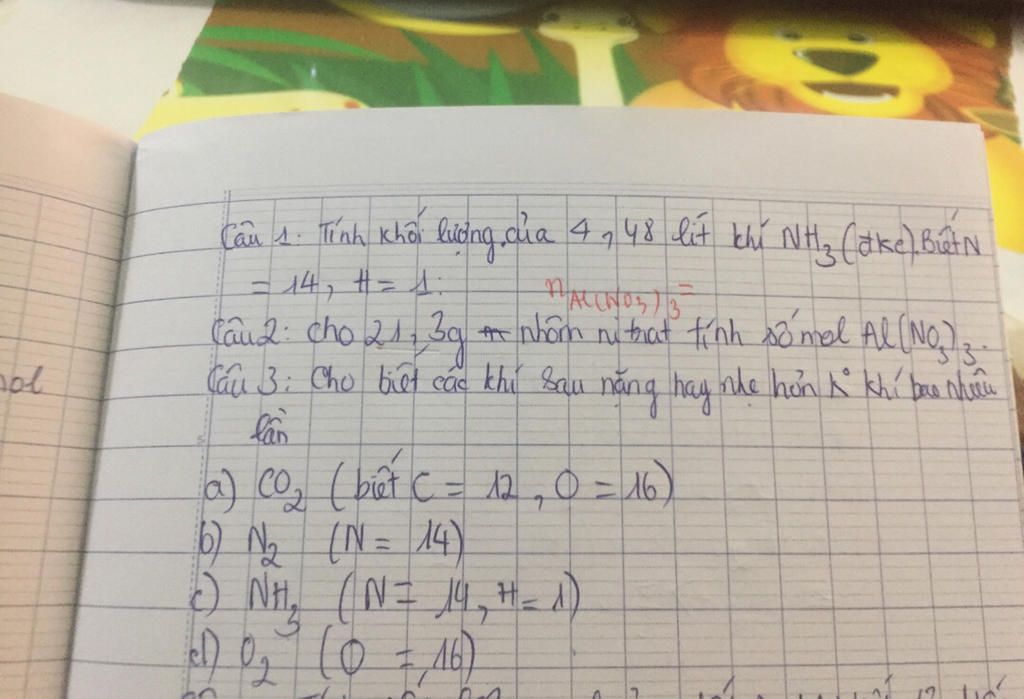 Câu 1. Tính khối lượng của 4,48 lít khí NH3 (đkc). Biết N
= 14, H = 1.
nAl(NO3)3 =
Câu 2: Cho 21,3g nhôm nitrat tính số mol Al(NO3)3.
Câu 3: Cho biết các khí sau nặng hay nhẹ hơn K° khí bao nhiêu
lần
a) CO2 (biết C = 12, O = 16)
b) N2 (N = 14)
c) NH3 (N = 14, H = 1)
d) O2 (O = 16)